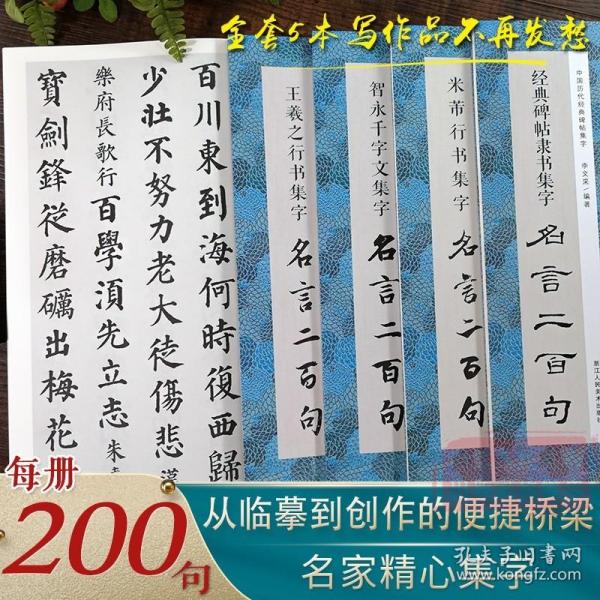 全套5本 写作品不再发愁
百川東到海何時復西歸
少壯不努力老大徒傷悲 漢
樂府長歌行 百學須先立志 朱
寶劍鋒從磨礪出梅花
王羲之行书集字
名言二百句
智永千字文集字
名言二百句
米芾行书集字
名言二百句
经典碑帖隶书集字
名言二百句
中国历代经典碑帖集字
李文采/编著
浙江人民美术出版社
每册
200句
从临摹到创作的便捷桥梁
名家精心集字
孔夫子旧书网
www.kongfz.com